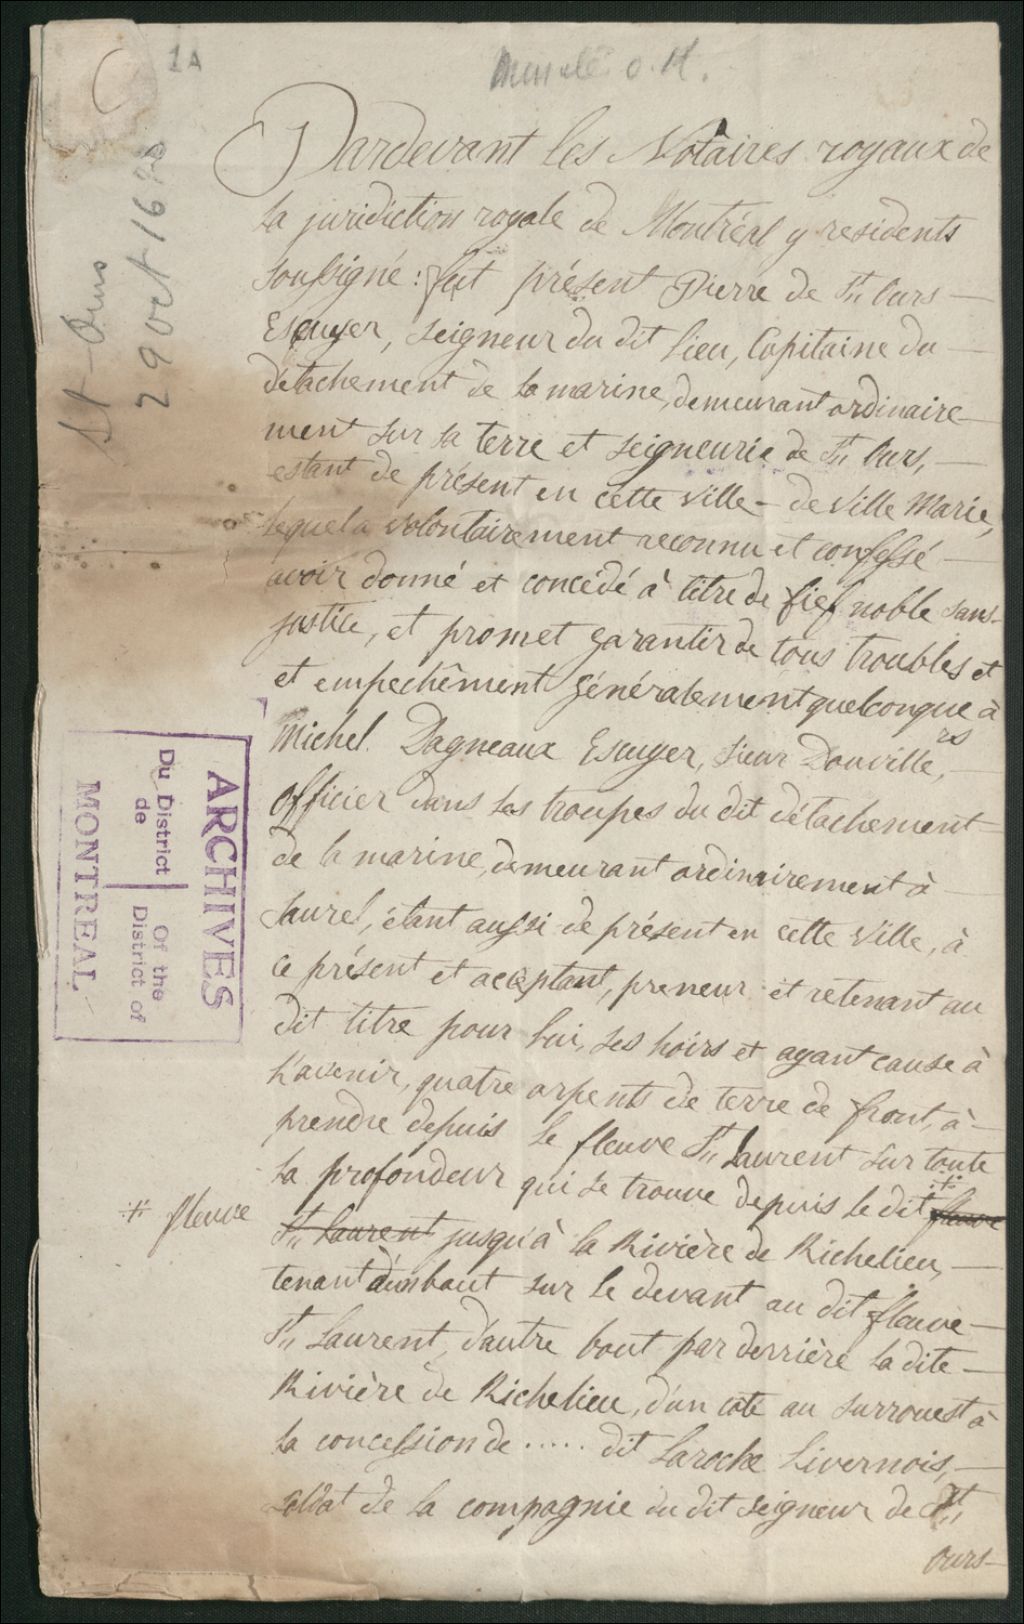 1A
St-Ours
29 oct 16
Pardevant les Notaires royaux de
la juridiction royale de Montréal y residents
soussigné: fut présent Pierre de St. Ours
Escuyer, Seigneur du dit lieu, Capitaine du
détachement de la marine, demeurant ordinaire-
ment sur sa terre et seigneurie de St. Ours,
estant de présent en cette ville de Ville Marie,
lequel a volontairement reconnu et confessé
avoir donné et concédé à titre de fief noble sans
justice, et promet garantir de tous troubles et
et empechêment généralement quelconque à
Michel Dagneaux Escuyer, Sieur Douville,
rs
officier dans les troupes du dit détachement
de la marine, demeurant ordinairement à
Saurel, étant aussi de présent en cette Ville, à
ce présent et acceptant, preneur et retenant au
dit titre pour lui, ses hoirs et ayant cause à
l'avenir, quatre arpents de terre de front, à
prendre depuis le fleuve St. Laurent sur toute
la profondeur qui se trouve depuis le dit fleuve
fleuve
St. Laurent jusqu'à la Rivière de Richelieu,
tenant d'un bout sur le devant au dit fleuve
St. Laurent, d'autre bout par derrière la dite
Rivière de Richelieu, d'un coté au surrouest à
la concession de ..... dit Laroche Livernois,
soldat de la compagnie du dit seigneur de St.
Ours
ARCHIVES
Du District
de
Of the
District of
MONTREAL